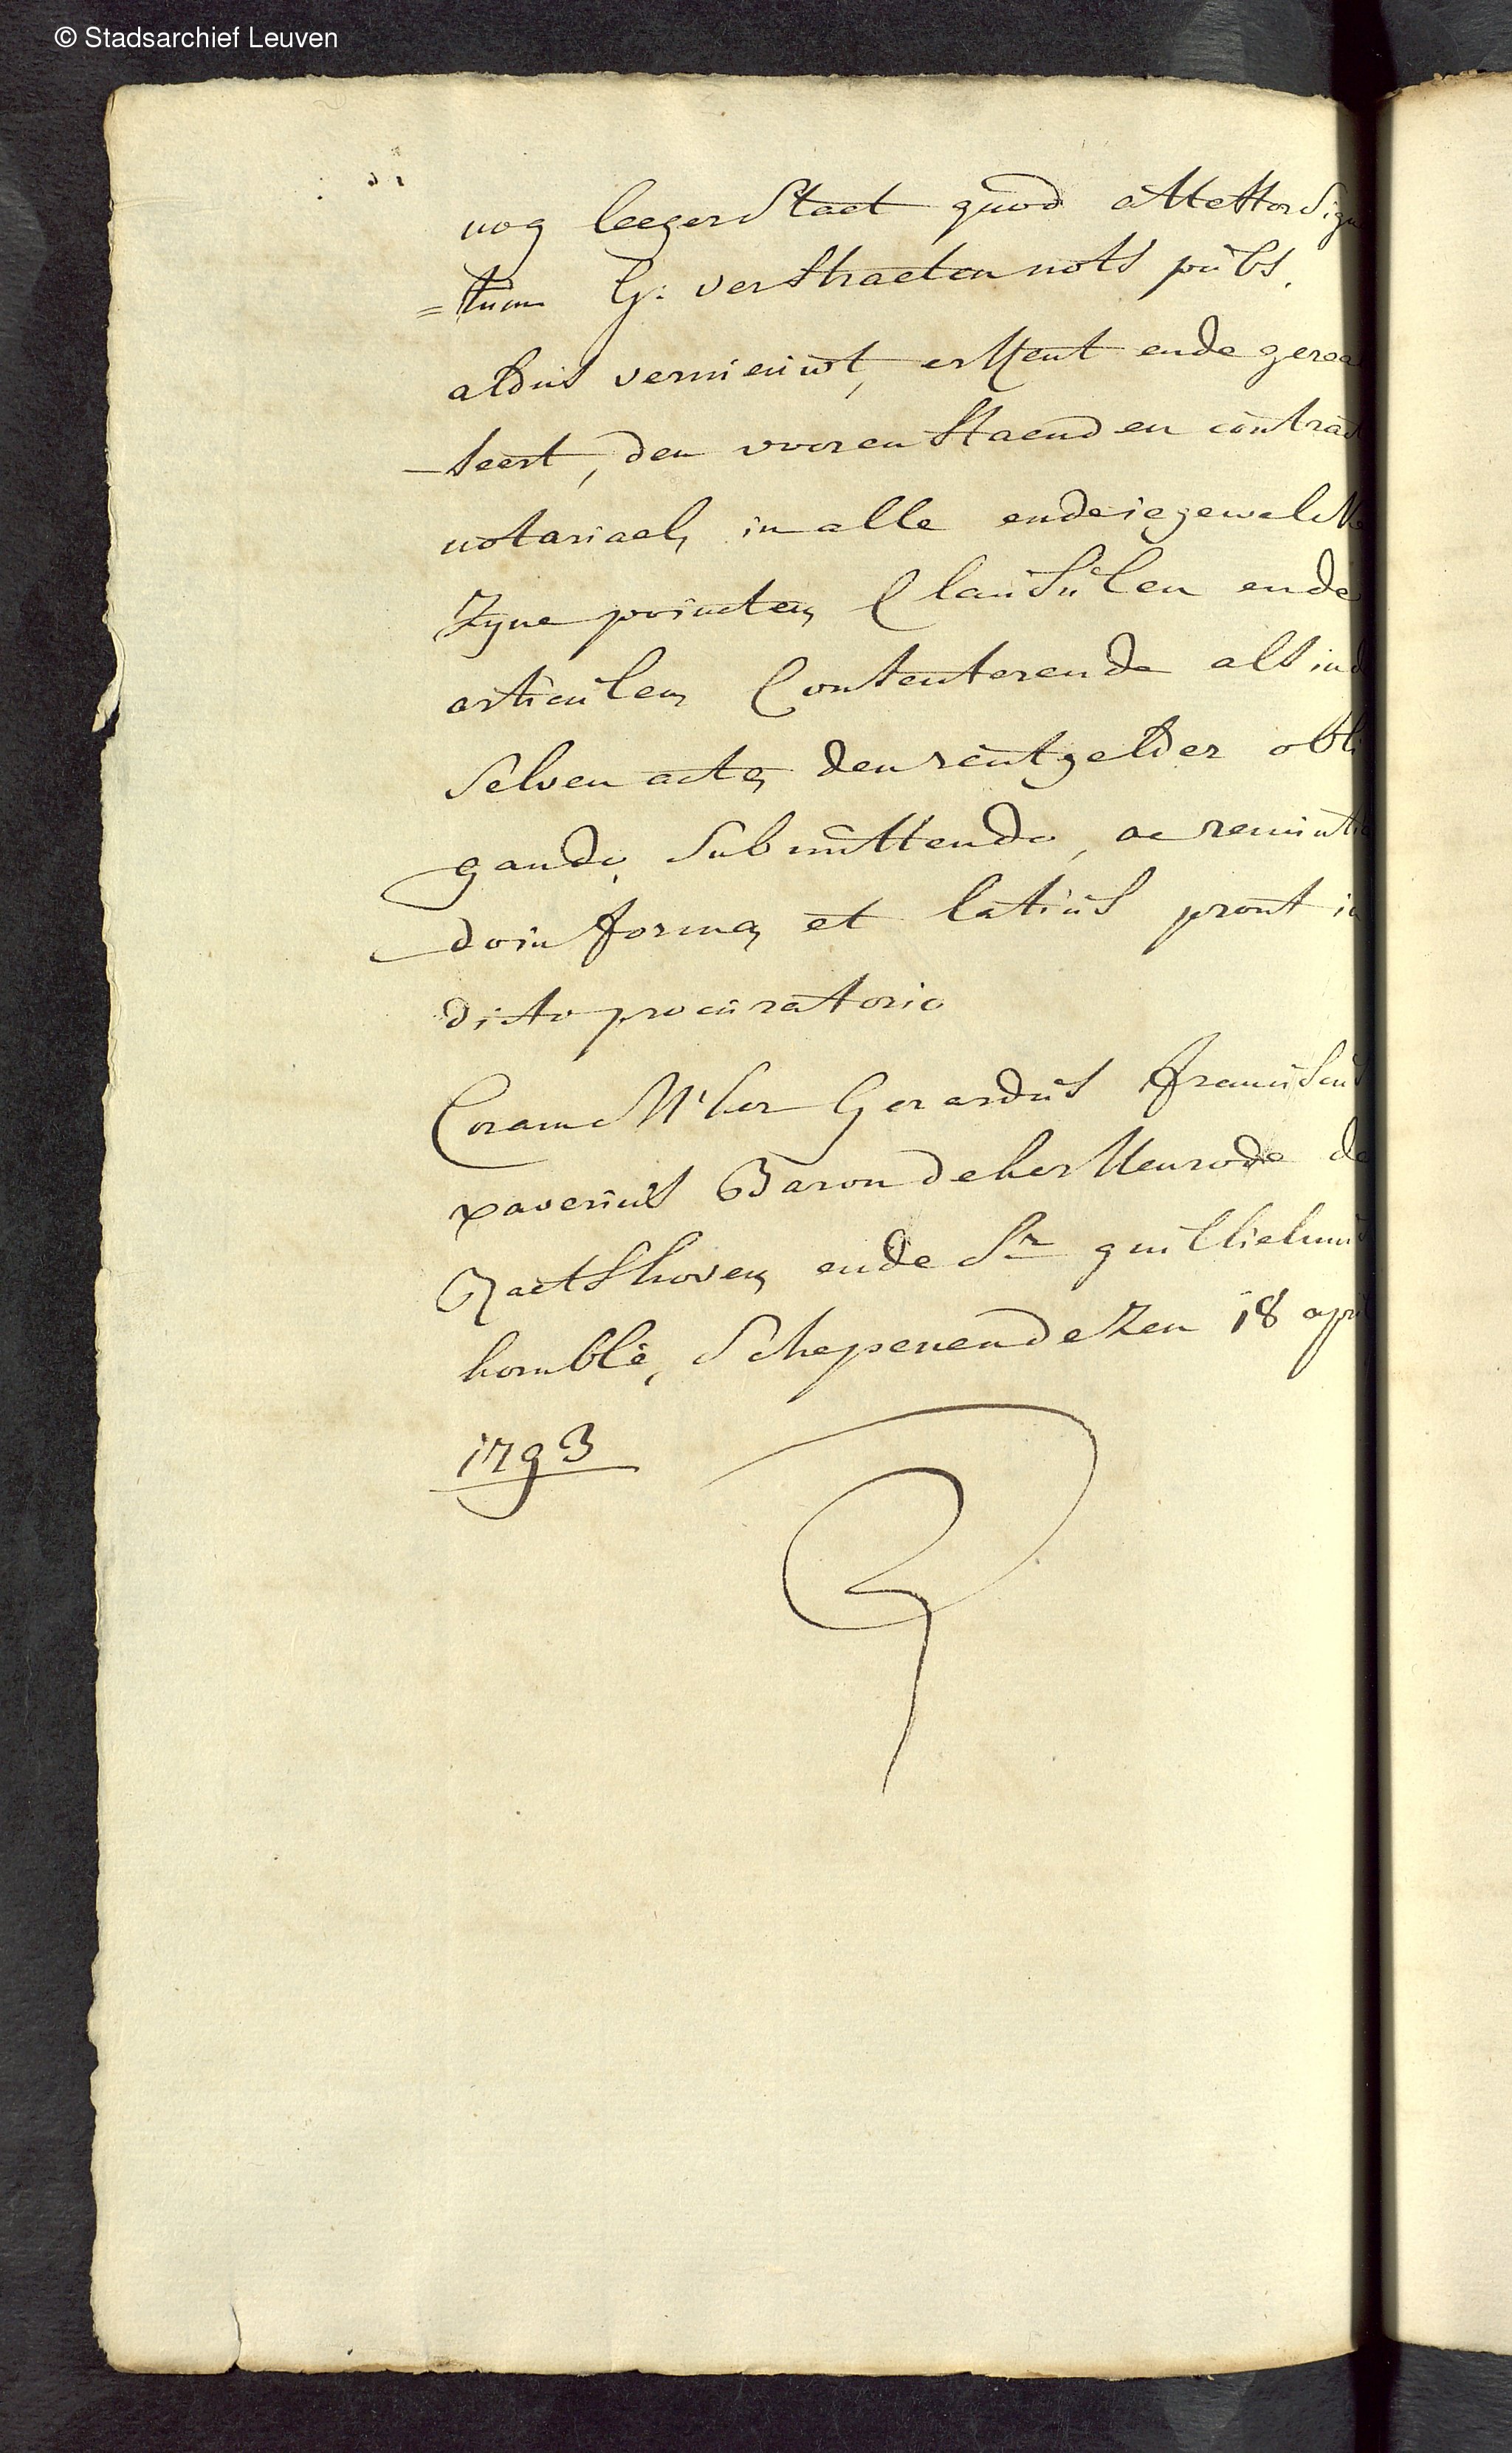 © Stadsarchief Leuven
nog leeger staet quod attestor sign
=tum G: verstraeten nots pubs.
aldus vernieuwt, erkent ende gerea
-teert, den vvorenstaenden contract
notariael, in alle ende iegewelcke
zyne poincten, Clausulen ende
articulen, Consenterende als in d
selven acte, den rentgelder obli
gando, submittendo, ac renuntia
do in forma, et latius prout in
dicto procuratorio
Coram Gerardus franciscus
xaverius Baron de herckenrode de
Ractshoven, ende Sr guillielmus
homblé, Schepenen dezen 18 april
1793